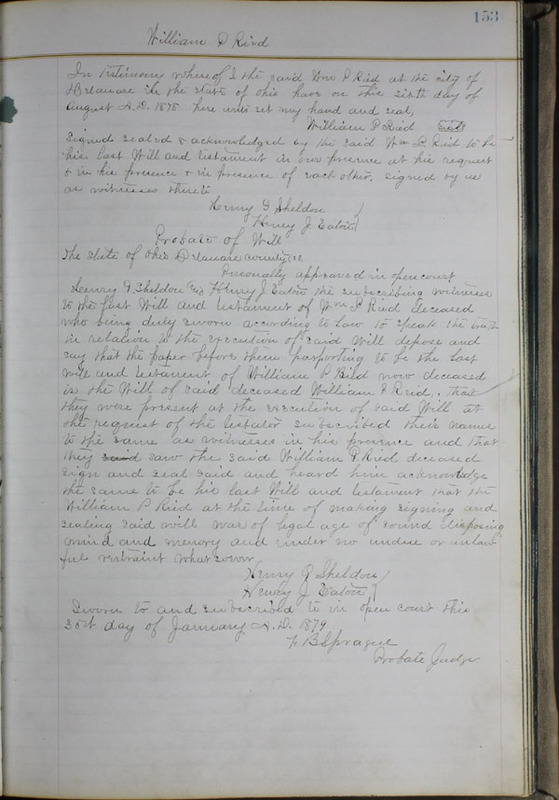 153
William P Reid
In testimony whereof I the said Wm P Reid at the city of
Delaware in the state of Ohio have on this sixth day of
August A.D. 1878 here unto set my hand and seal,
William P Reid Seal
Signed sealed & acknowledged by the said Wm P Reid to be
his last Will and testament in our presence at his request
& in his presence & in presence of each other, signed by us
as witnesses thereto
Henry G Sheldon
Henry J. Eaton
Probate of Will
The State of Ohio Delaware County ss
Personally appeared in open court
Henry G Sheldon & Henry J. Eaton the subscribing witnesses
to the last Will and testament of Wm P Reid deceased
who being duly sworn according to law to speak the truth
in relation to the execution of said Will depose and
say that the paper before them purporting to be the last
will and testament of William P Reid now deceased
is the Will of said deceased William P Reid, that
they were present at the execution of said Will at
the request of the testator subscribed their name
to the same as witnesses in his presence and that
they said saw the said William P Reid deceased
sign and seal said and heard him acknowledge
the same to be his last Will and testament that the
William P Reid at the time of making signing and
sealing said will was of legal age of sound disposing
mind and memory and under no undue or unlaw
ful restraint whatsoever
Henry G Sheldon
Henry J. Eaton
Sworn to and subscribed to in open court this
30st day of January A.D. 1879
B Sprague
Probate Judge